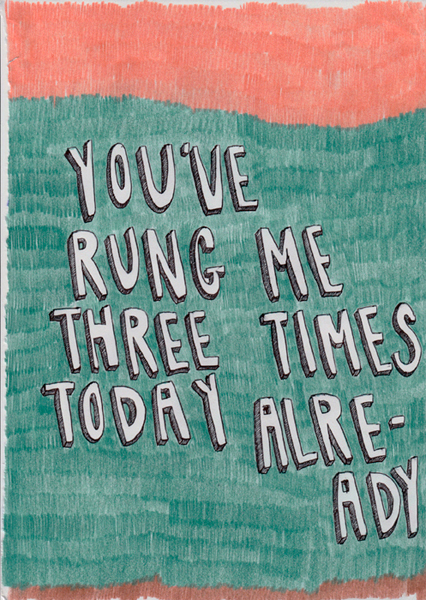 YOU'VE
RUNG ME
THREE TIMES
TODAY ALRE-
ADY